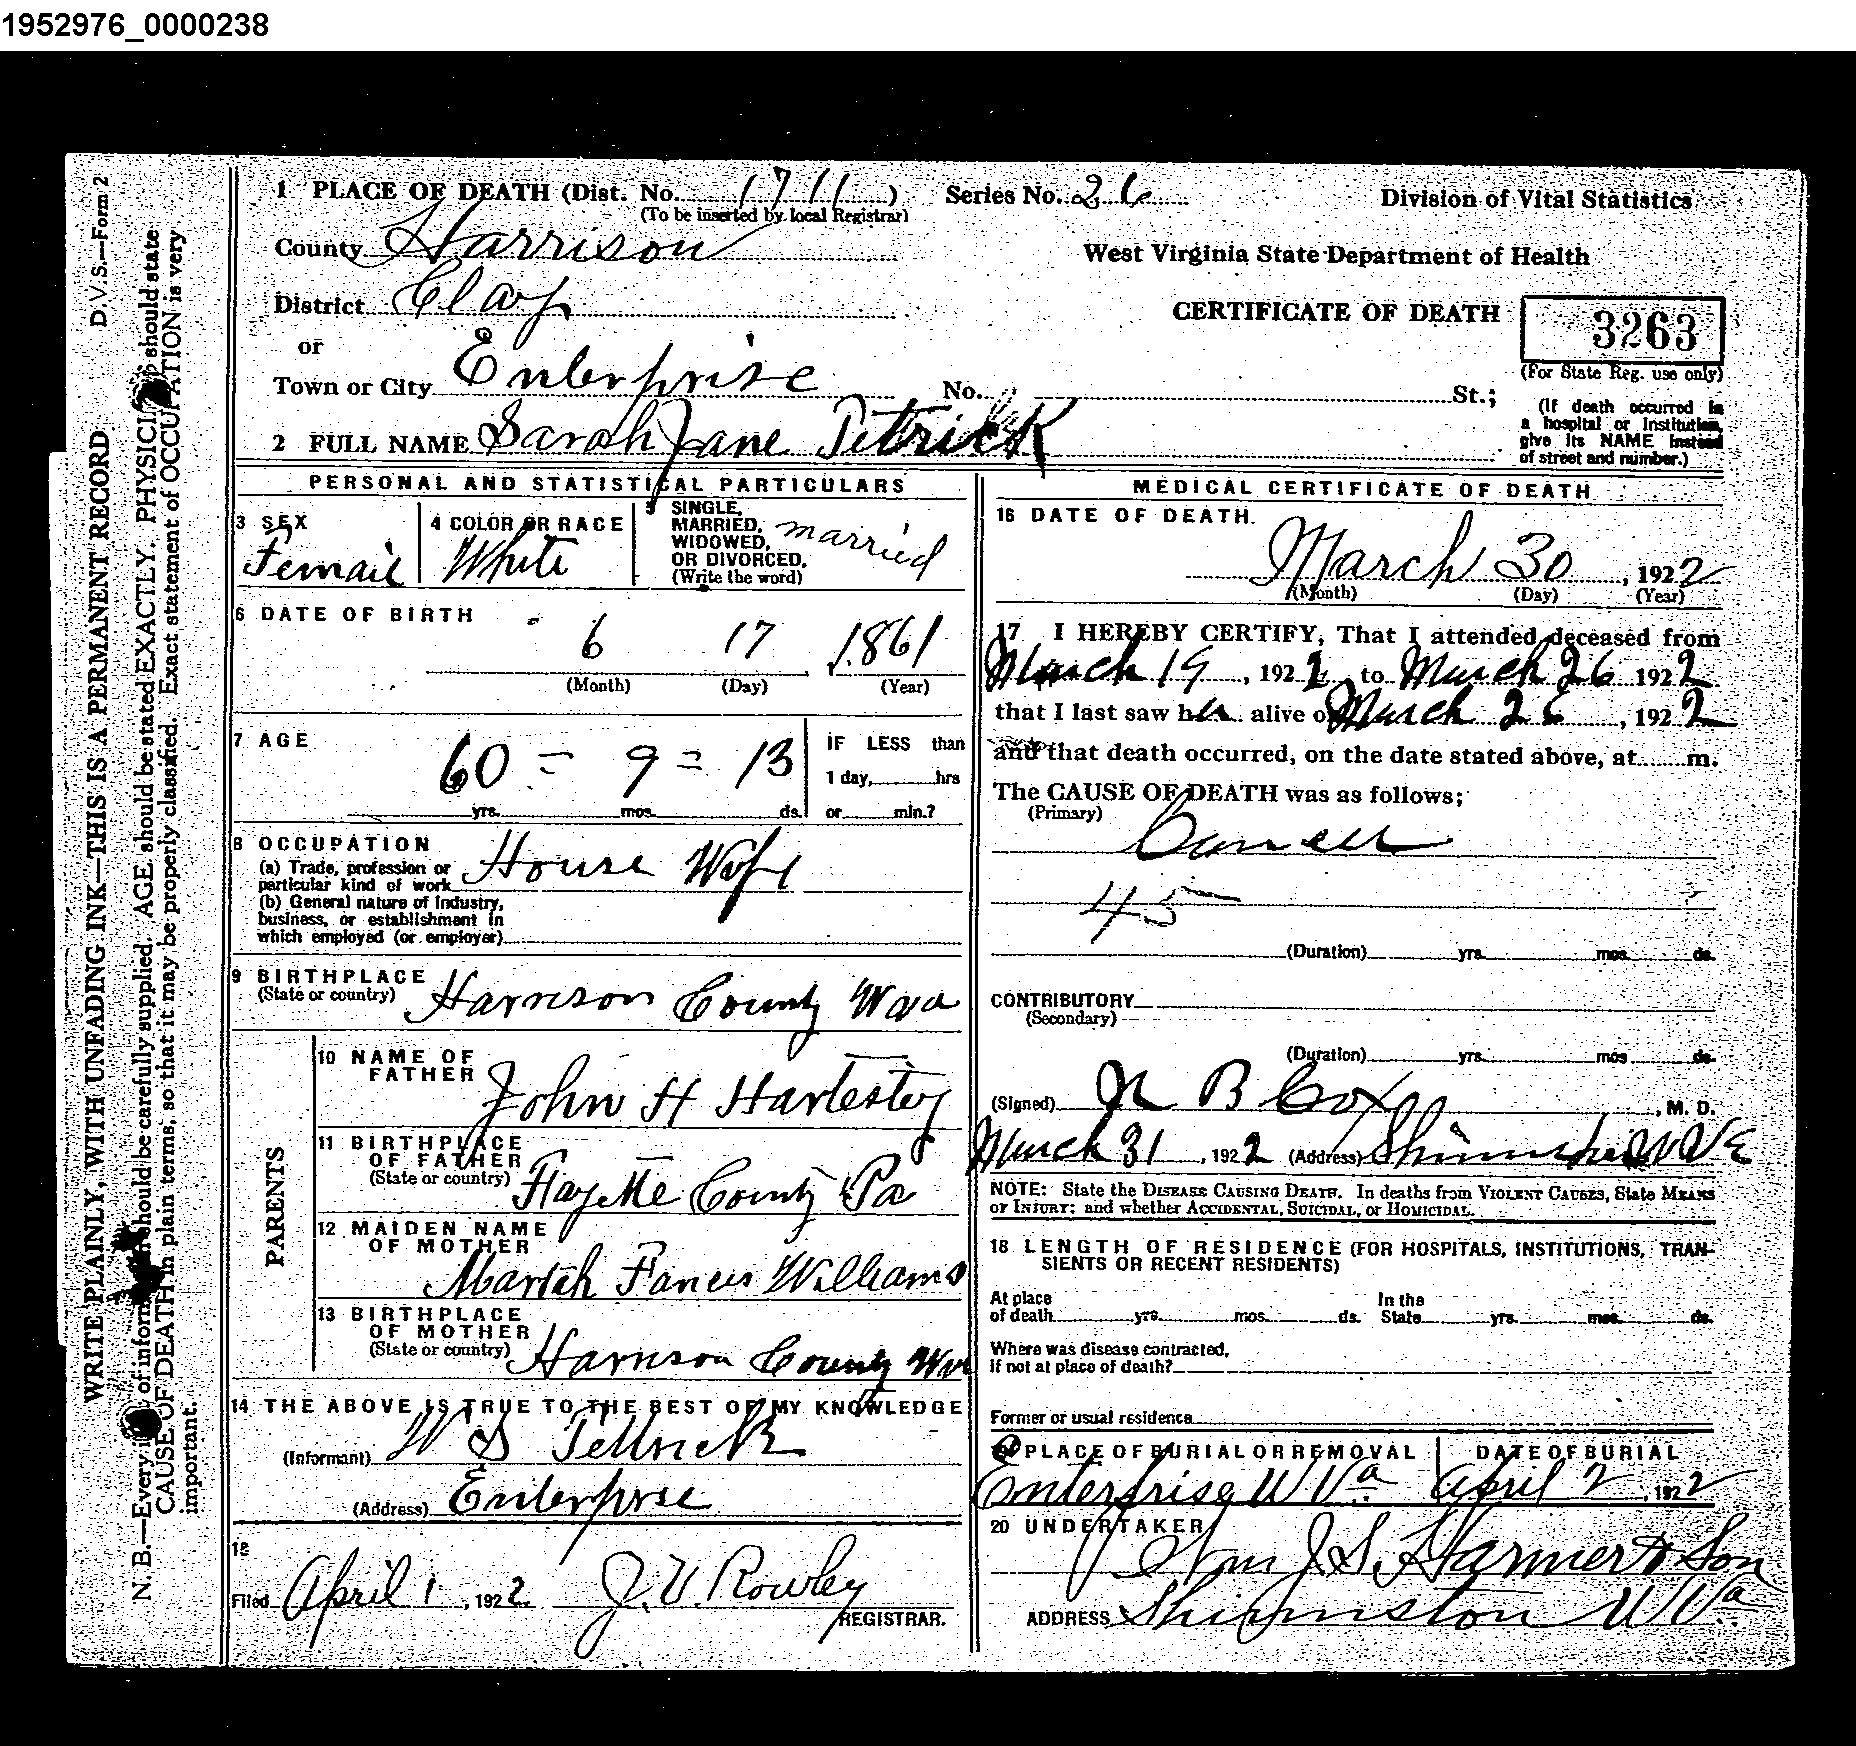 1952976_0000238
D.V.S.—Form 2
WRITE PLAINLY, WITH UNFADING INK—THIS IS A PERMANENT RECORD
N. B.—Every of inform should be carefully supplied. AGE should be stated EXACTLY. PHYSICI should state
CAUSE OF DEATH in plain terms, so that it may be properly classified. Exact statement of OCCUPATION is very
important.
1 PLACE OF DEATH (Dist. No. 1711) Series No. 26
(To be inserted by local Registrar)
Division of Vital Statistics
County Harrison
West Virginia State Department of Health
District Clay
CERTIFICATE OF DEATH
3263
(For State Reg. use only)
or
Town or City Enterprise No. St.;
(If death occurred in
a hospital or institution,
give its NAME instead
of street and number.)
2 FULL NAME Sarah Jane Petrick
PERSONAL AND STATISTICAL PARTICULARS
3 SEX
Femail
4 COLOR OR RACE
White
5 SINGLE,
MARRIED,
WIDOWED,
OR DIVORCED.
(Write the word)
married
6 DATE OF BIRTH
6 17 1861
(Month) (Day) (Year)
7 AGE
60 = 9 = 13
yrs. mos. ds.
IF LESS than
1 day, hrs
or min.?
8 OCCUPATION
(a) Trade, profession or
particular kind of work House Wife
(b) General nature of Industry,
business, or establishment in
which employed (or employer)
9 BIRTHPLACE
(State or country) Harrison County Wva
PARENTS
10 NAME OF
FATHER
John H Hartestey
11 BIRTHPLACE
OF FATHER
(State or country) Fayette County Pa
12 MAIDEN NAME
OF MOTHER
Martah Fancis Williams
13 BIRTHPLACE
OF MOTHER
(State or country) Harrison County Wva
14 THE ABOVE IS TRUE TO THE BEST OF MY KNOWLEDGE
(Informant) W S Tettrick
(Address) Enterprse
15
Filed April 1, 1922 J. V. Rowley
REGISTRAR.
MEDICAL CERTIFICATE OF DEATH
16 DATE OF DEATH.
March 30, 1922
(Month) (Day) (Year)
17 I HEREBY CERTIFY, That I attended deceased from
March 19, 1922, to March 26 1922
that I last saw her alive on March 26, 1922
and that death occurred, on the date stated above, at m.
The CAUSE OF DEATH was as follows;
(Primary)
Cancer
45
(Duration) yrs. mos. ds.
CONTRIBUTORY
(Secondary)
(Duration) yrs. mos. ds.
(Signed) B Cox, M. D.
March 31, 1922 (Address)
NOTE: State the DISEASE CAUSING DEATH. In deaths from VIOLENT CAUSES, State MEANS
OF INJURY; and whether ACCIDENTAL, SUICIDAL, or HOMICIDAL.
18 LENGTH OF RESIDENCE (FOR HOSPITALS, INSTITUTIONS, TRAN-
SIENTS OR RECENT RESIDENTS)
At place
of death yrs. mos. ds.
In the
State yrs. mos. ds.
Where was disease contracted,
If not at place of death?
Former or usual residence
19 PLACE OF BURIAL OR REMOVAL
Enterprise W Va
DATE OF BURIAL
April 2, 1922
20 UNDERTAKER
J. S. Harmer & Son
ADDRESS Shinnston W Va